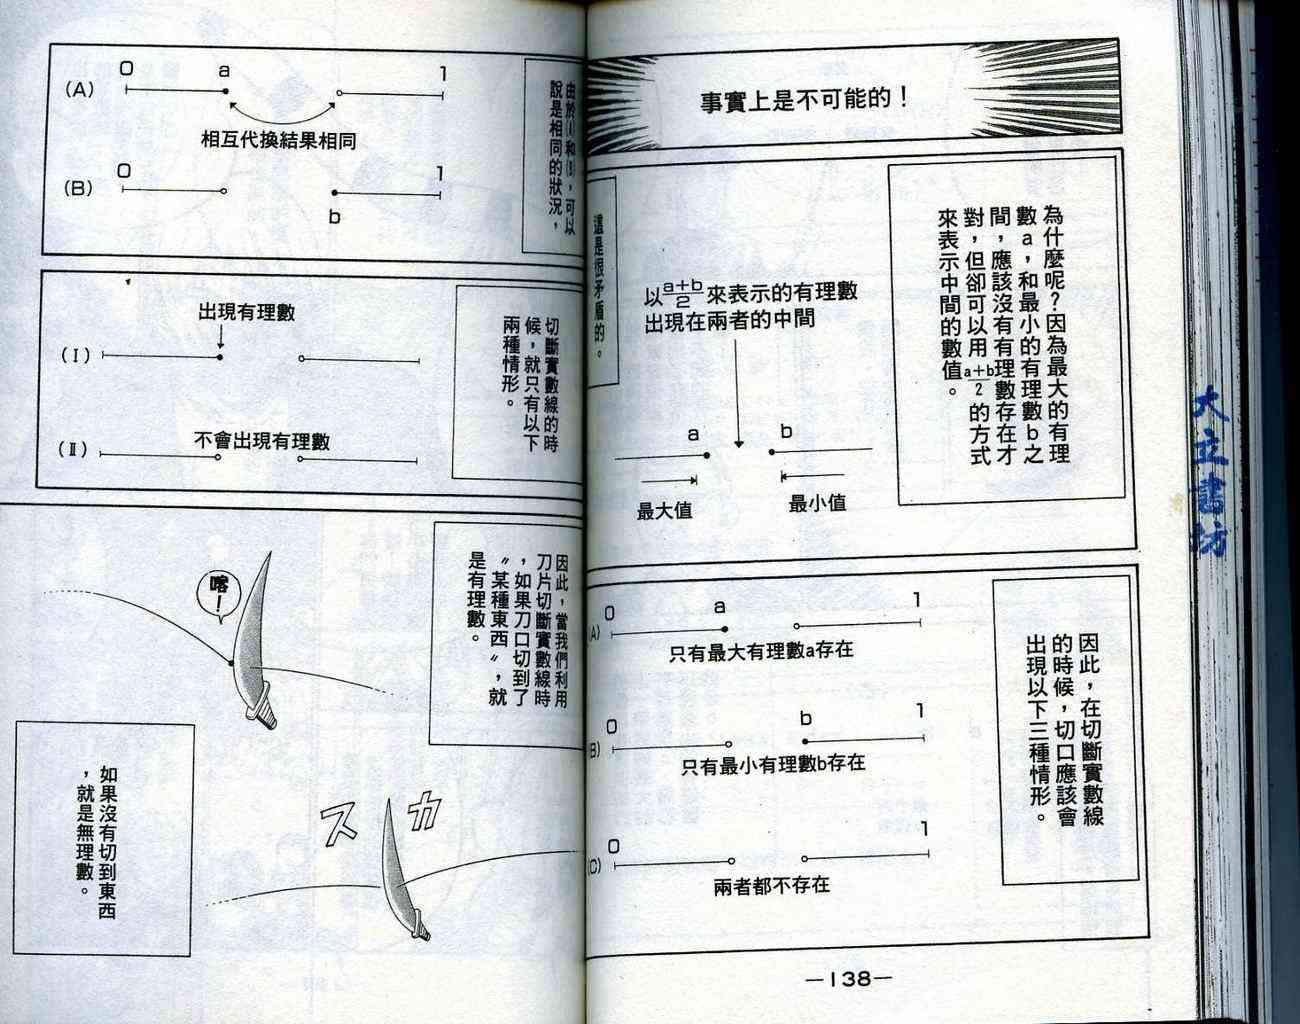 事實上是不可能的！
為什麼呢？因為最大的有理
數a，和最小的有理數b之
間，應該沒有有理數存在才
對，但卻可以用a+b/2的方式
來表示中間的數值。
以a+b/2來表示的有理數
出現在兩者的中間
a
b
最大值
最小值
這是很矛盾的。
因此，在切斷實數線
的時候，切口應該會
出現以下三種情形。
0
a
1
(A)
只有最大有理數a存在
0
b
1
(B)
只有最小有理數b存在
0
1
(C)
兩者都不存在
—138—
由於(A)和(B)，可以
說是相同的狀況，
0
a
1
(A)
相互代換結果相同
0
1
(B)
b
切斷實數線的時
候，就只有以下
兩種情形。
出現有理數
(Ⅰ)
不會出現有理數
(Ⅱ)
因此，當我們利用
刀片切斷實數線時
，如果刀口切到了
〝某種東西〞，就
是有理數。
喀！
スカ
如果沒有切到東西
，就是無理數。
大立書坊